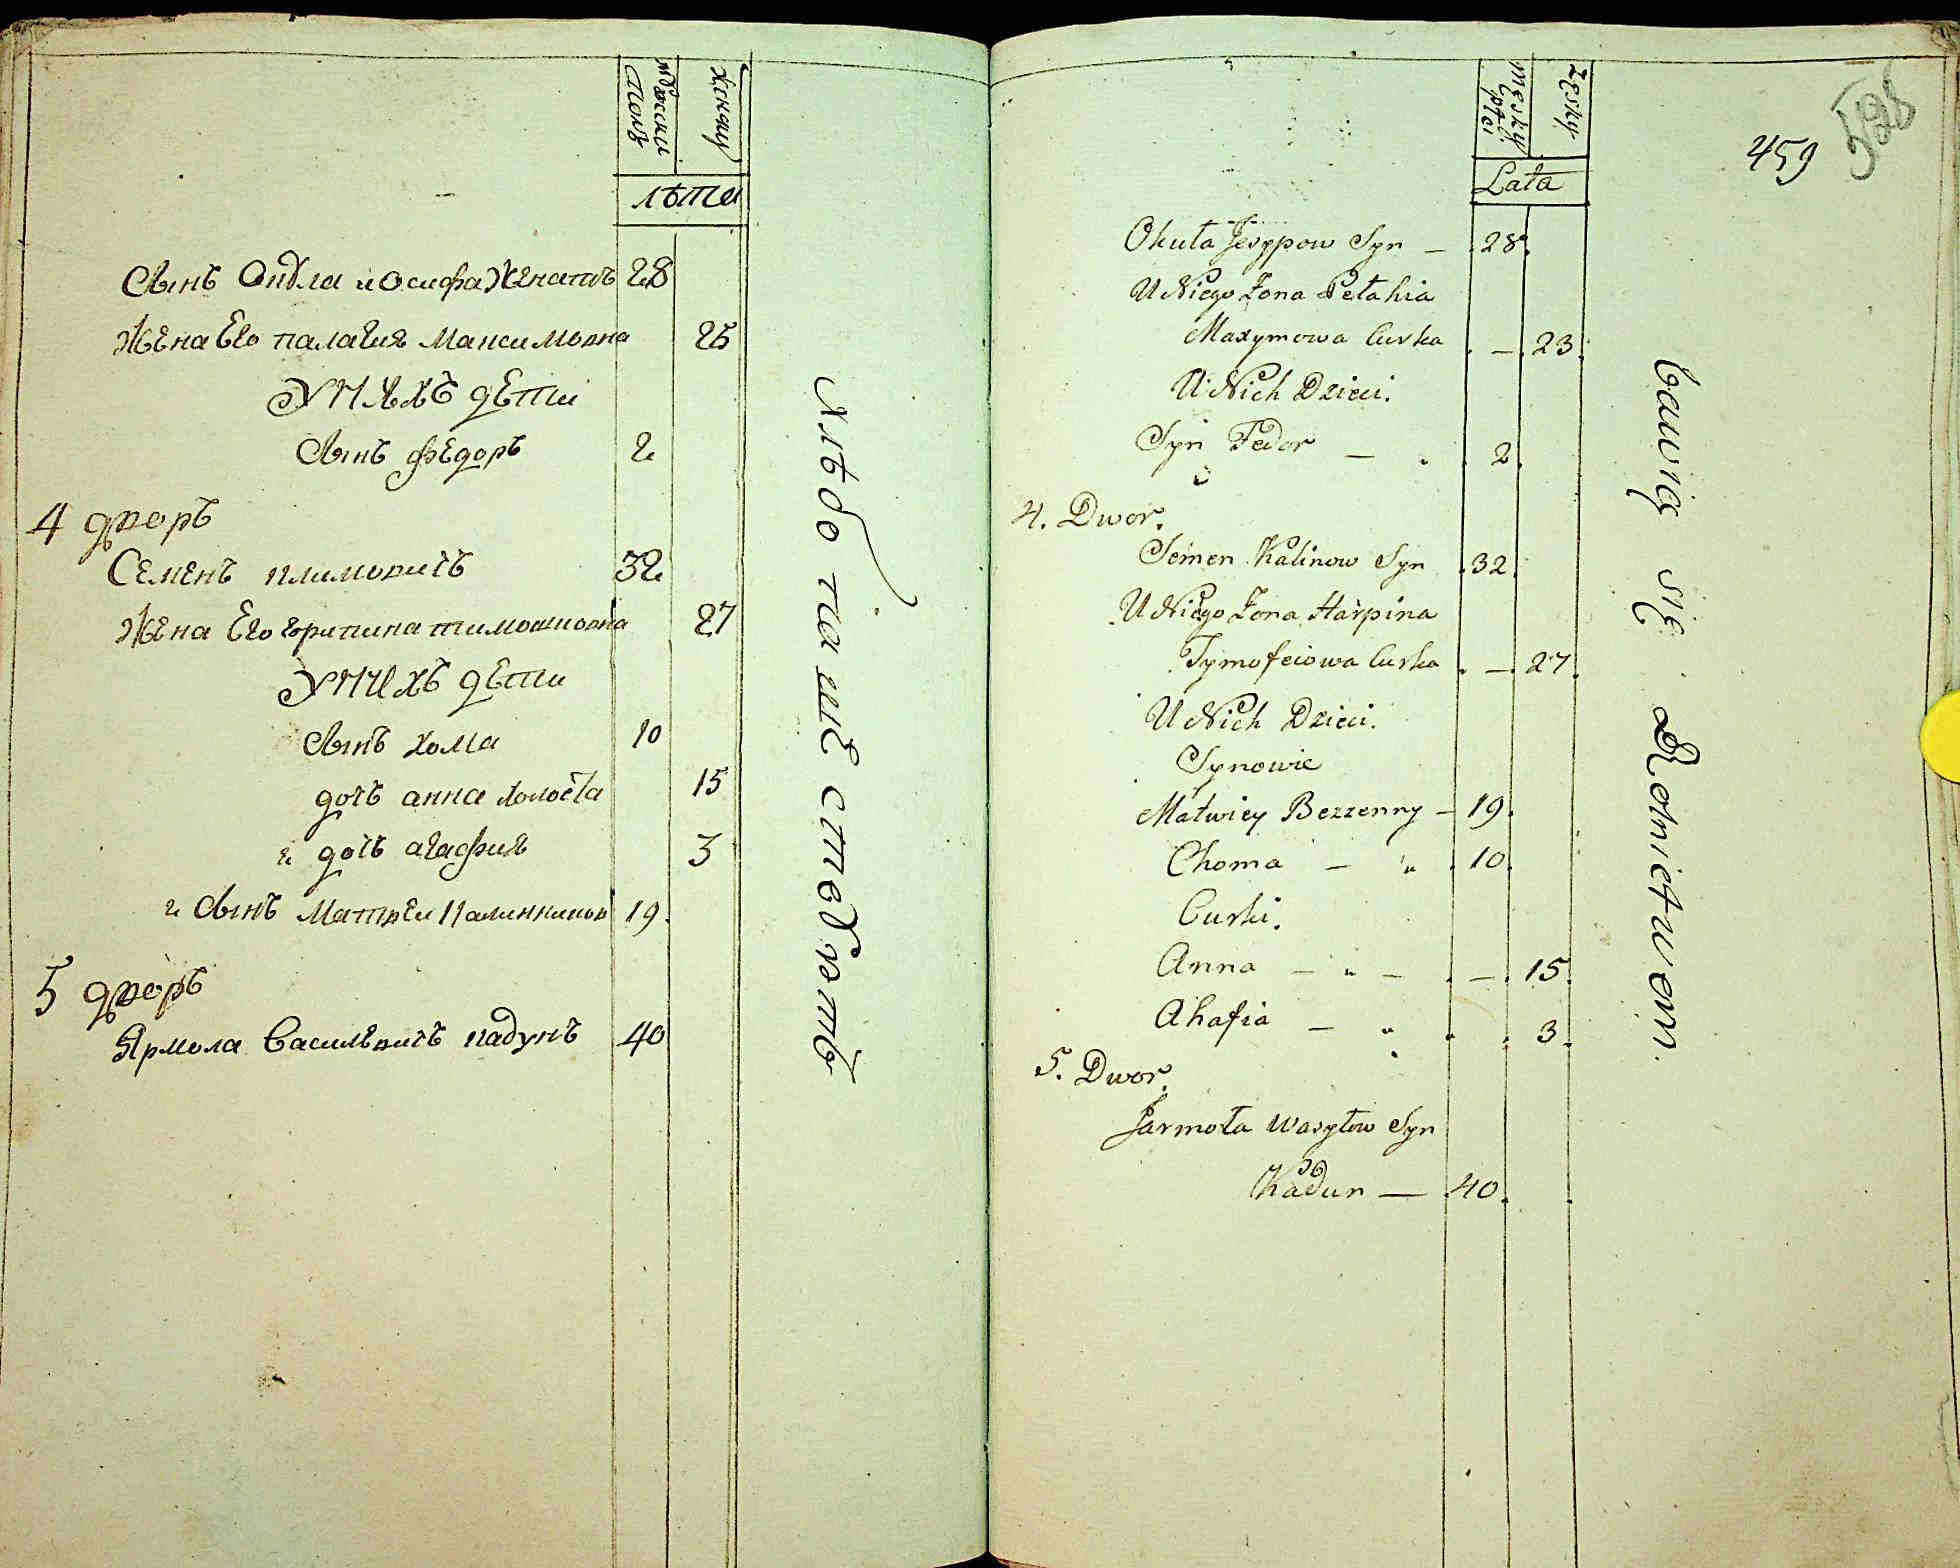 мужска Полу
женску
лѣта
Сынъ Окула Иосифа Женатъ 28
Жена Его палагия Максимовна 25
У НИХЪ дети
Сынъ федоръ 2
4 дворъ
Семенъ климовичъ 32
Жена Его горипина тимошковна 27
У НИХЪ дети
Сынъ хома 10
дочъ анна холоста 15
и дочъ агафия 3
и Сынъ Матвеи Калинников 19
5 дворъ
Ярмола Васильвичъ кадунъ 40
хлѣбопашествуютъ
męsky płci
żęsky
Lata
459
Okuła Jesypow Syn — 28
U Niego Żona Pełahia
Maxymowa Curka — 23
U Nich Dzieci.
Syn Fedor — 2
4. Dwor.
Semen Kalinow Syn 32
U Niego Żona Harpina
Tymofeiowa Curka — 27
U Nich Dzieci.
Synowie
Matwiey Bezzenny — 19
Choma — " 10
Curki.
Anna — " — — 15
Ahafia — " 3
5. Dwor.
Jarmoła Wasyłow Syn
Kadun — 40
bawią się Rolnictwem.